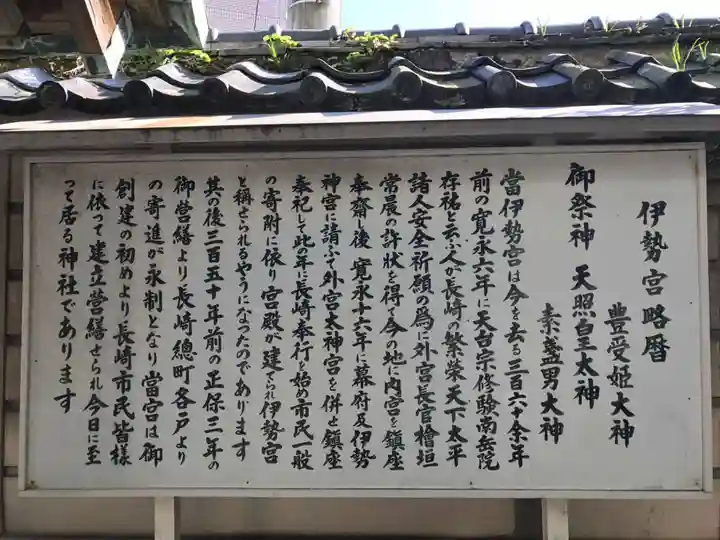 伊勢宮略暦
豊受姫大神
御祭神 天照皇太神
素盞男大神
當伊勢宮は今を去る三百六十余年
前の寛永六年に天台宗修験南岳院
存祐と云ふ人が長崎の繁栄天下太平
諸人安全祈願の為に外宮長官檜垣
常晨の許状を得て今の地に内宮を鎮座
奉齋し後寛永十六年に幕府及伊勢
神宮に請ふて外宮太神宮を併せ鎮座
奉祀して此の年に長崎奉行を始め市民一般
の寄附に依り宮殿が建てられ伊勢宮
と稱せられるやうになったのであります
其の後三百五十年前の正保三年の
御営繕より長崎總町各戸より
の寄進が永制となり當宮は御
創建の初めより長崎市民皆様
に依って建立営繕せられ今日に至
って居る神社であります